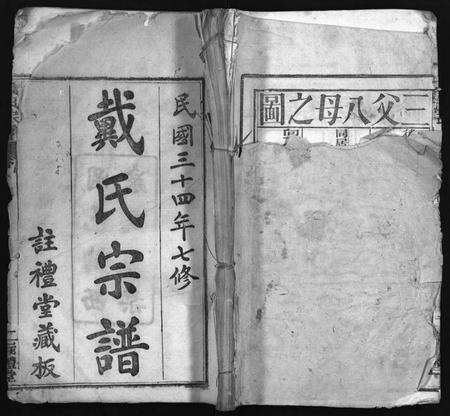 三父八母之圖
民國三十四年七修
戴氏宗譜
註禮堂藏板